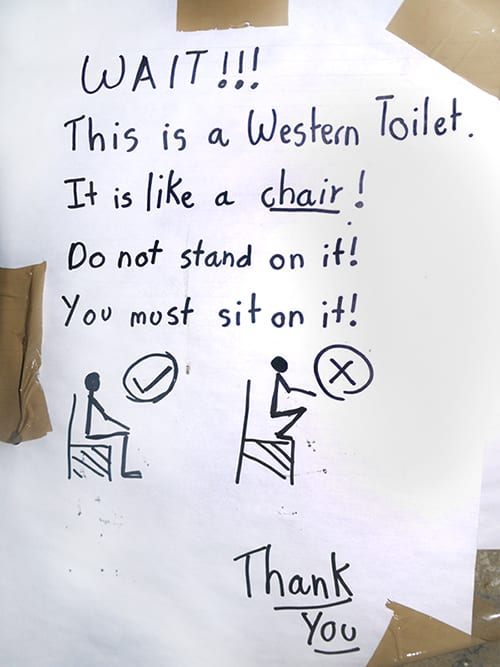 WAIT!!!
This is a Western Toilet.
It is like a chair!
Do not stand on it!
You must sit on it!
Thank
You